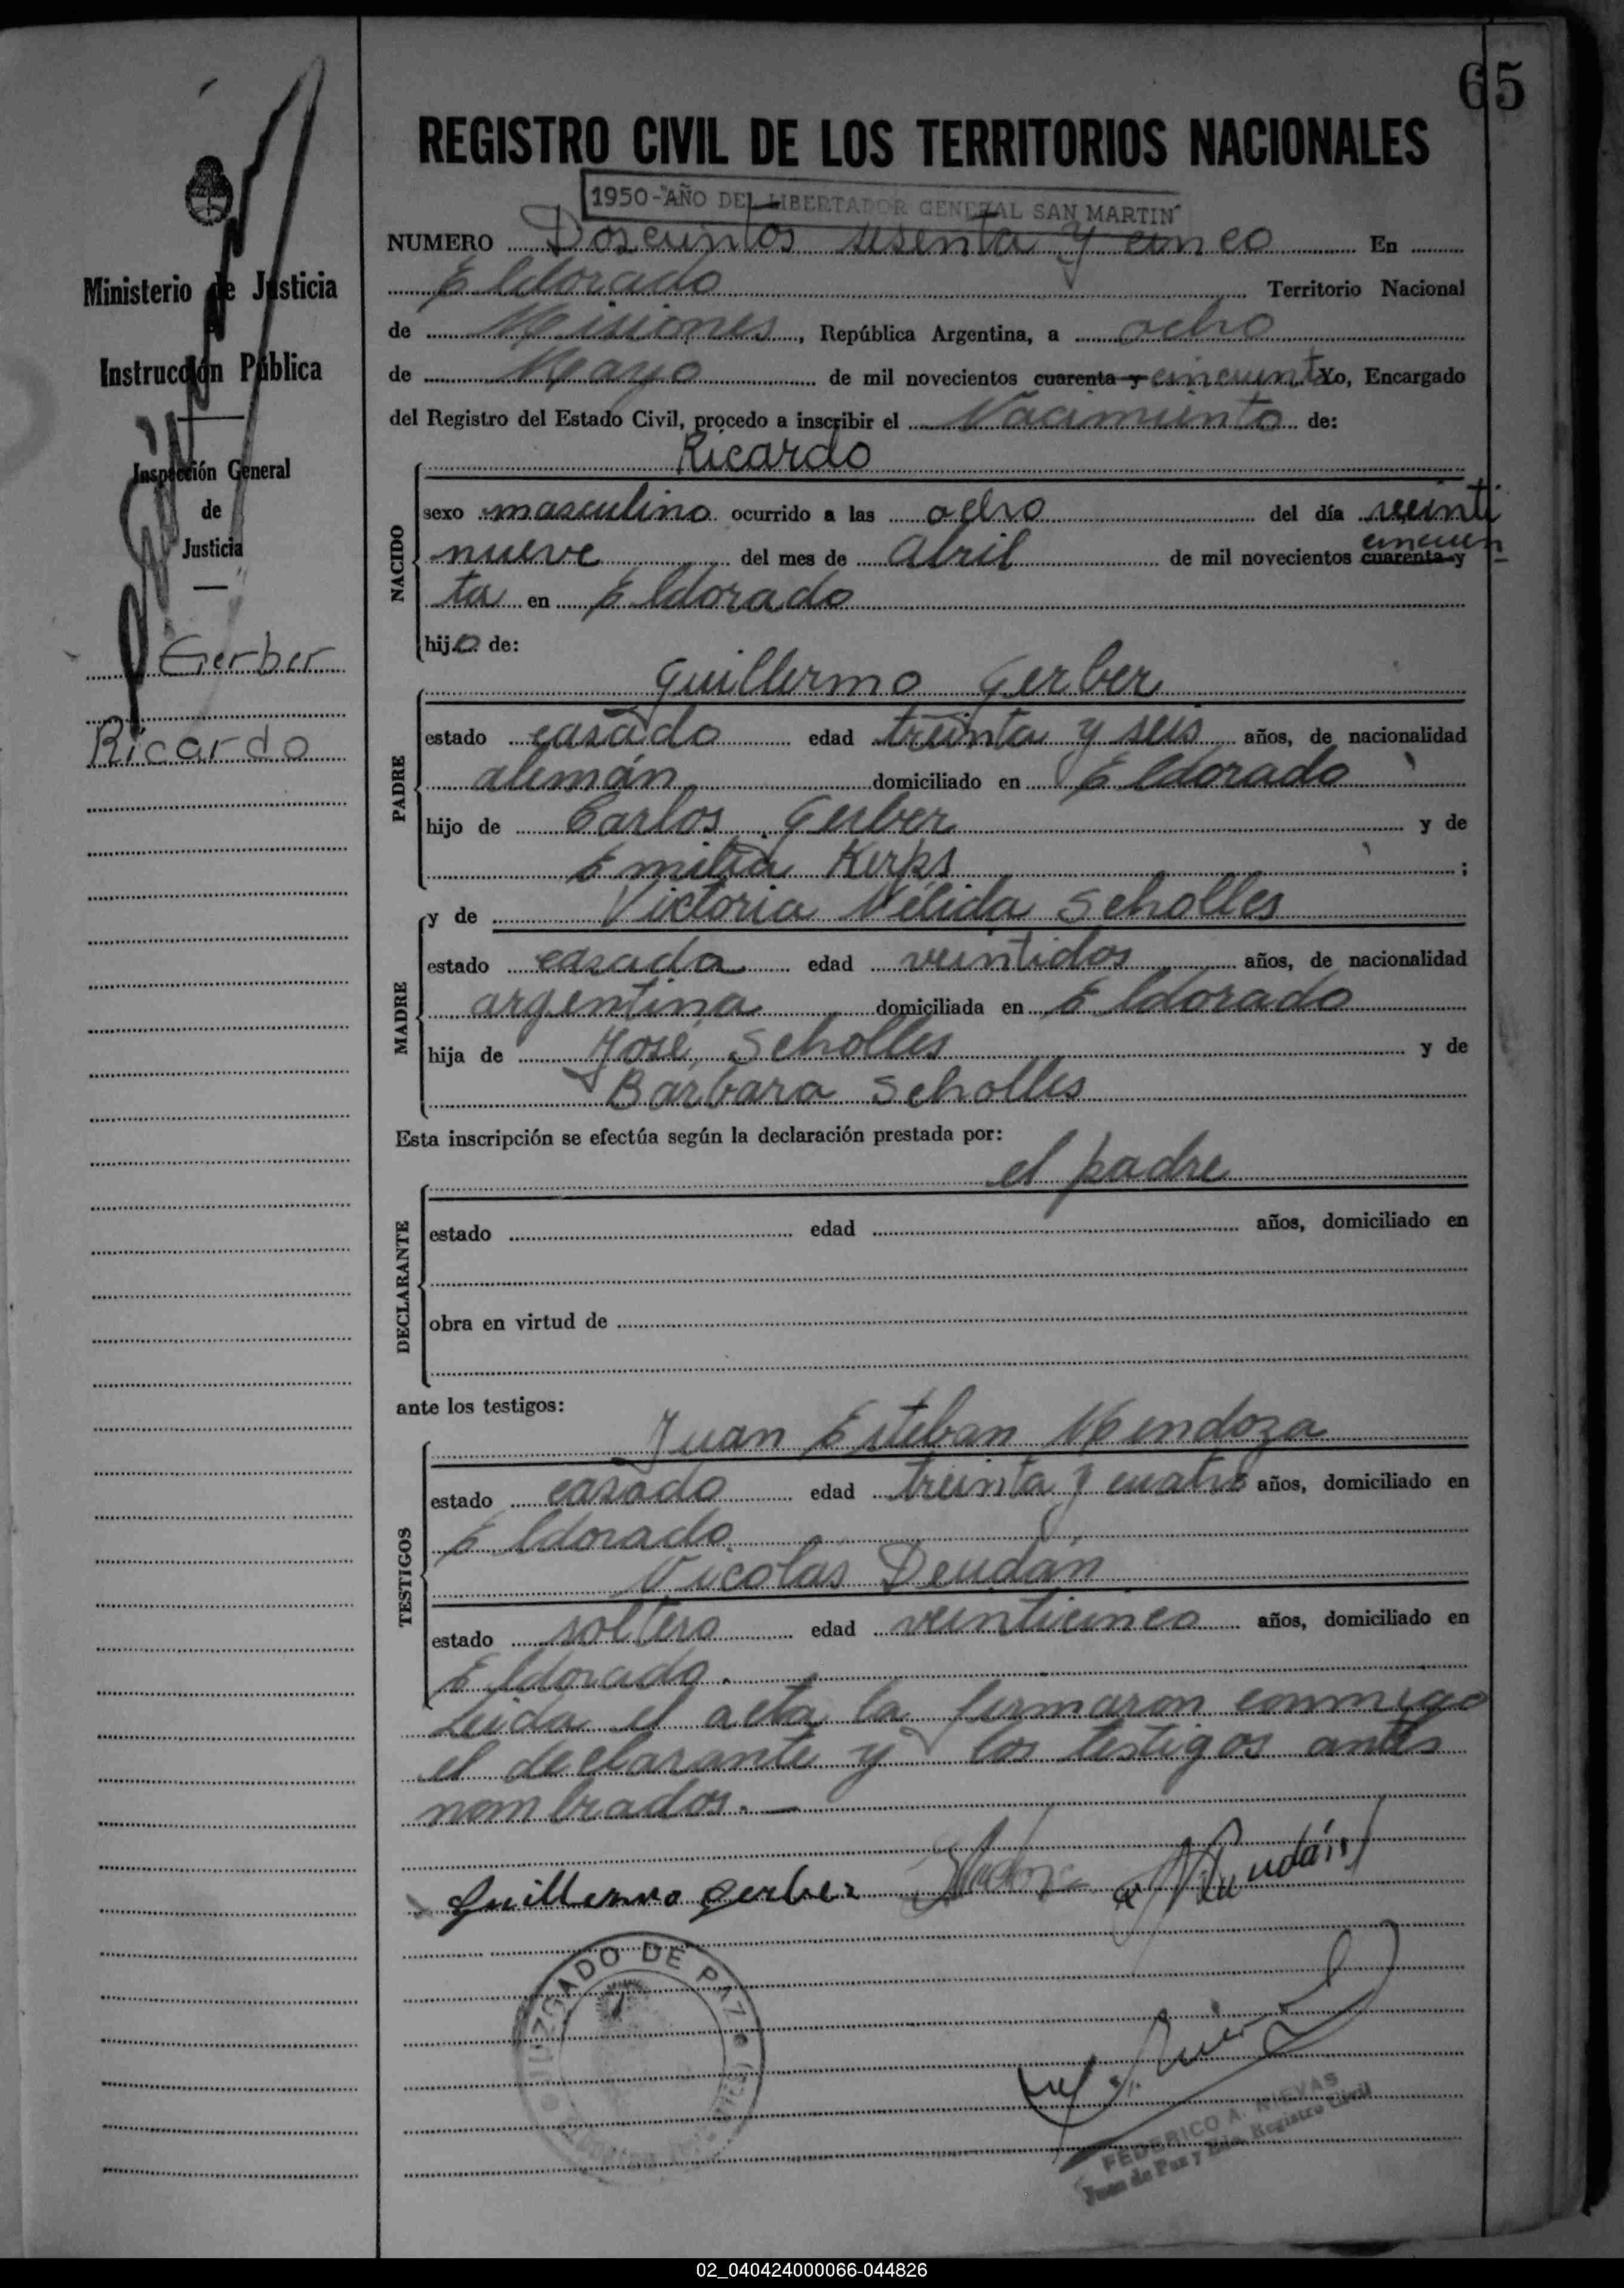 65
REGISTRO CIVIL DE LOS TERRITORIOS NACIONALES
1950-"AÑO DEL LIBERTADOR GENERAL SAN MARTIN"
NUMERO Doscientos sesenta y cinco En
Eldorado Territorio Nacional
de Misiones, República Argentina, a ocho
de Mayo de mil novecientos cuarenta y cincuenta Yo, Encargado
del Registro del Estado Civil, procedo a inscribir el Nacimiento de:
Ricardo
NACIDO
sexo masculino ocurrido a las ocho del día veinti
nueve del mes de abril de mil novecientos cuarenta y cincuen
ta en Eldorado
hijo de:
Guillermo Gerber
PADRE
estado casado edad treinta y seis años, de nacionalidad
alemán domiciliado en Eldorado
hijo de Carlos Gerber y de
Emilia Kerps ;
MADRE
y de Victoria Nélida Scholles
estado casada edad veintidos años, de nacionalidad
argentina domiciliada en Eldorado
hija de José Scholles y de
Bárbara Scholles
Esta inscripción se efectúa según la declaración prestada por:
el padre
DECLARANTE
estado edad años, domiciliado en
obra en virtud de
ante los testigos:
TESTIGOS
Juan Esteban Mendoza
estado casado edad treinta y cuatro años, domiciliado en
Eldorado
Nicolás Deudán
estado soltero edad veinticinco años, domiciliado en
Eldorado.
Leida el acta la firmaron conmigo
el declarante y los testigos antes
nombrados.—
Guillermo Gerber
JUZGADO DE PAZ
FEDERICO A. NIEVAS
Juez de Paz y Edo. Registro Civil
Ministerio de Justicia
Instrucción Pública
Inspección General
de
Justicia
Gerber
Ricardo
02_040424000066-044826